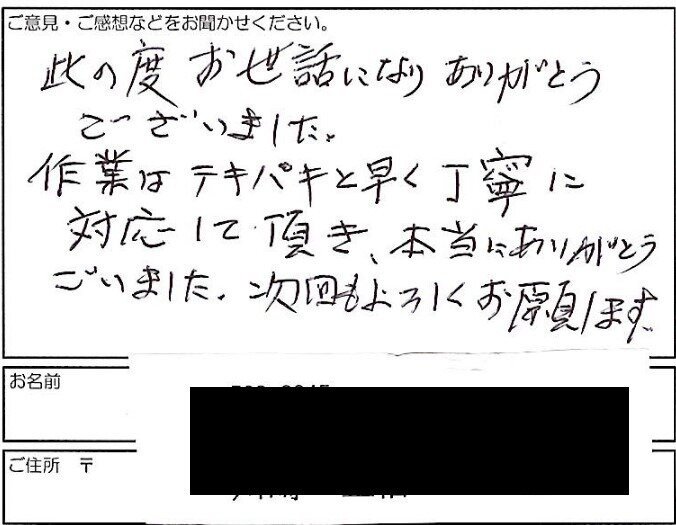 ご意見・ご感想などをお聞かせください。
此の度お世話になりありがとう
ございました。
作業はテキパキと早く丁寧に
対応して頂き、本当にありがとう
ございました。次回もよろしくお願します。
お名前
ご住所 〒